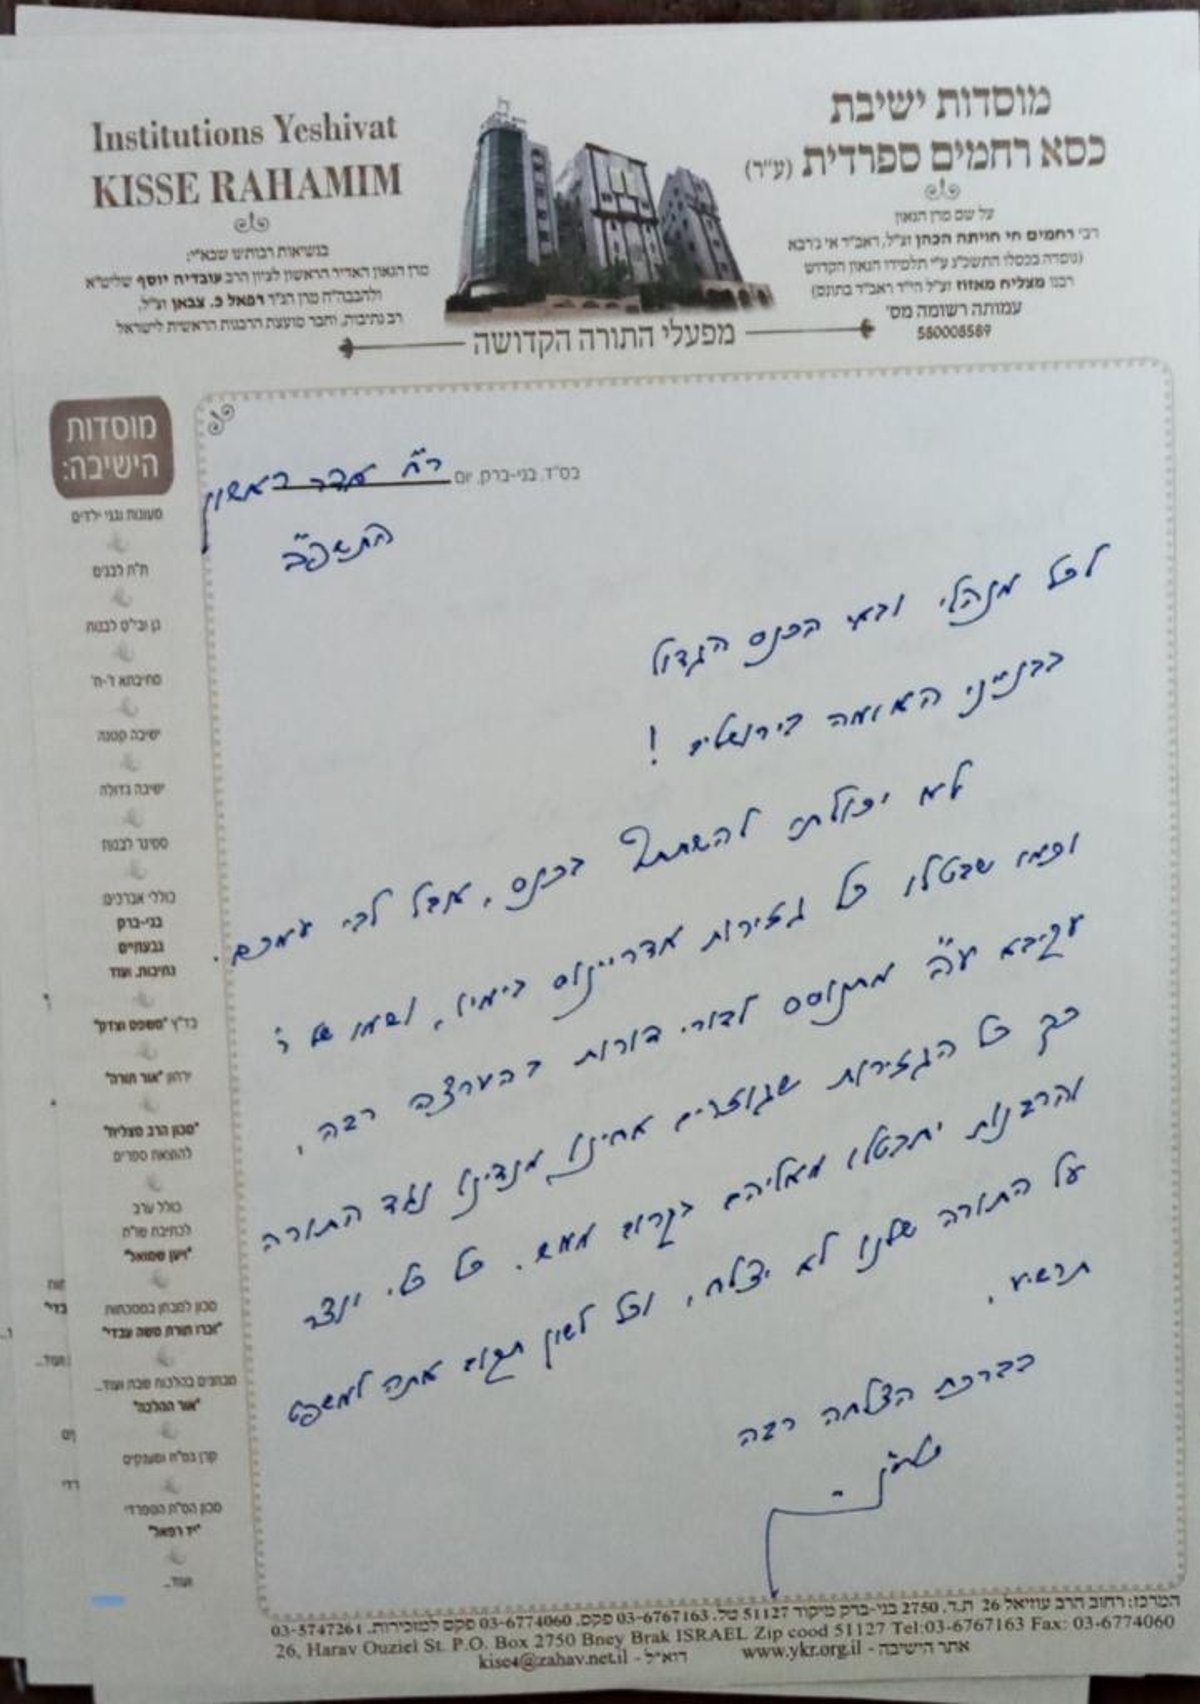 מוסדות ישיבת
כסא רחמים ספרדית (ע"ר)
על שם מרן הגאון
רבי רחמים חי חויתה הכהן זצ"ל, ראב"ד אי ג'רבא
(נוסדה בכסלו התשכ"ג ע"י תלמידו הגאון הקדוש
רבנו מצליח מאזוז זצ"ל הי"ד ראב"ד בתונס)
עמותה רשומה מס'
580008589
Institutions Yeshivat
KISSE RAHAMIM
בנשיאות רבותינו שבא"י:
מרן הגאון האדיר הראשון לציון הרב עובדיה יוסף שליט"א
ולהבבה"ח מרן הג"ר רפאל כ. צבאן זצ"ל,
רב נתיבות, וחבר מועצת הרבנות הראשית לישראל
מפעלי התורה הקדושה
בס"ד, בני-ברק, יום ר"ח אדר ראשון
התשפ"ב
לכל מנהלי ובאי הכנס הגדול
בבנייני האומה בירושלים !
לא יכולתי להשתתף בכנס, אבל לבי עמכם.
וכמו שבטלו כל גזירות אדריינוס בימיו, ושמו של ר'
עקיבא ע"ה מתנוסס לדורי דורות בהערצה רבה,
כך כל הגזירות שגוזרים אחינו מנדינו נגד התורה
והרבנות יתבטלו מאליהם בקרוב ממש. כל כלי יוצר
על התורה שלנו לא יצלח, וכל לשון תקום אתה למשפט
תרשיע.
בברכת הצלחה רבה
מוסדות
הישיבה:
מעונות וגני ילדים
ת"ת לבנים
גן ובי"ס לבנות
מתיבתא ז'-ח'
ישיבה קטנה
ישיבה גדולה
סמינר לבנות
כוללי אברכים:
בני-ברק
גבעתיים
נתיבות, ועוד
בד"ץ "משפט וצדק"
ירחון "אור תורה"
"מכון הרב מצליח"
להוצאת ספרים
כולל ערב
לכתיבת שו"ת
"ויען שמואל"
מכון למבחן במסכתות
"זכרו תורת משה עבדי"
מבחנים בהלכות שבת ועוד...
"אור ההלכה"
קרן גמ"ח ומענקים
מכון הס"ת הספרדי
"יד רפאל"
ועוד...
המרכז: רחוב הרב עוזיאל 26 ת.ד. 2750 בני-ברק מיקוד 51127 טל. 03-6767163 פקס. 03-6774060 פקס למזכירות. 03-5747261
26, Harav Ouziel St. P.O. Box 2750 Bney Brak ISRAEL Zip cood 51127 Tel:03-6767163 Fax: 03-6774060
אתר הישיבה - www.ykr.org.il דוא"ל - kise4@zahav.net.il